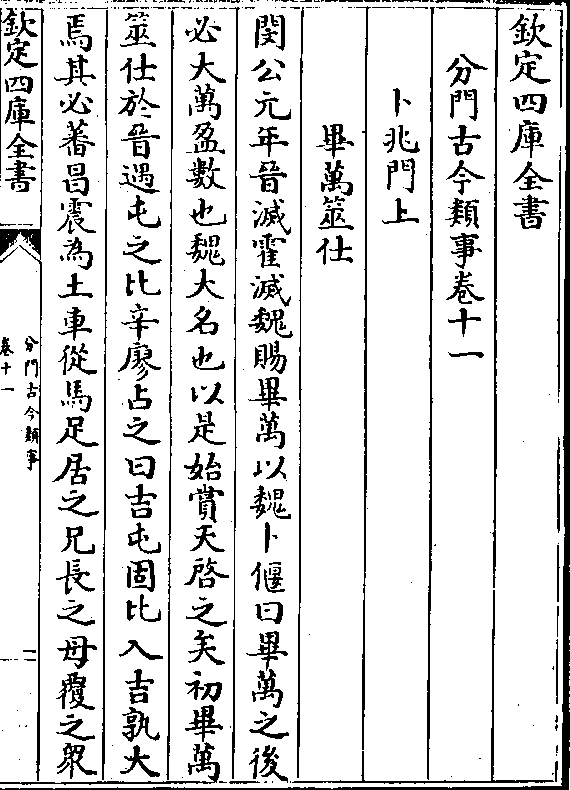 欽定四庫全書
分門古今類事卷十一
卜兆門上
畢萬筮仕
閔公元年晉滅霍滅魏賜畢萬以魏卜偃曰畢萬之後
必大萬盈數也魏大名也以是始賞天啓之矣初畢萬
筮仕於晉遇屯之比辛廖占之曰吉屯固比入吉孰大
焉其必蕃昌震為土車從馬足居之兄長之母覆之衆
欽定四庫全書
分門古今類事
卷十一
一